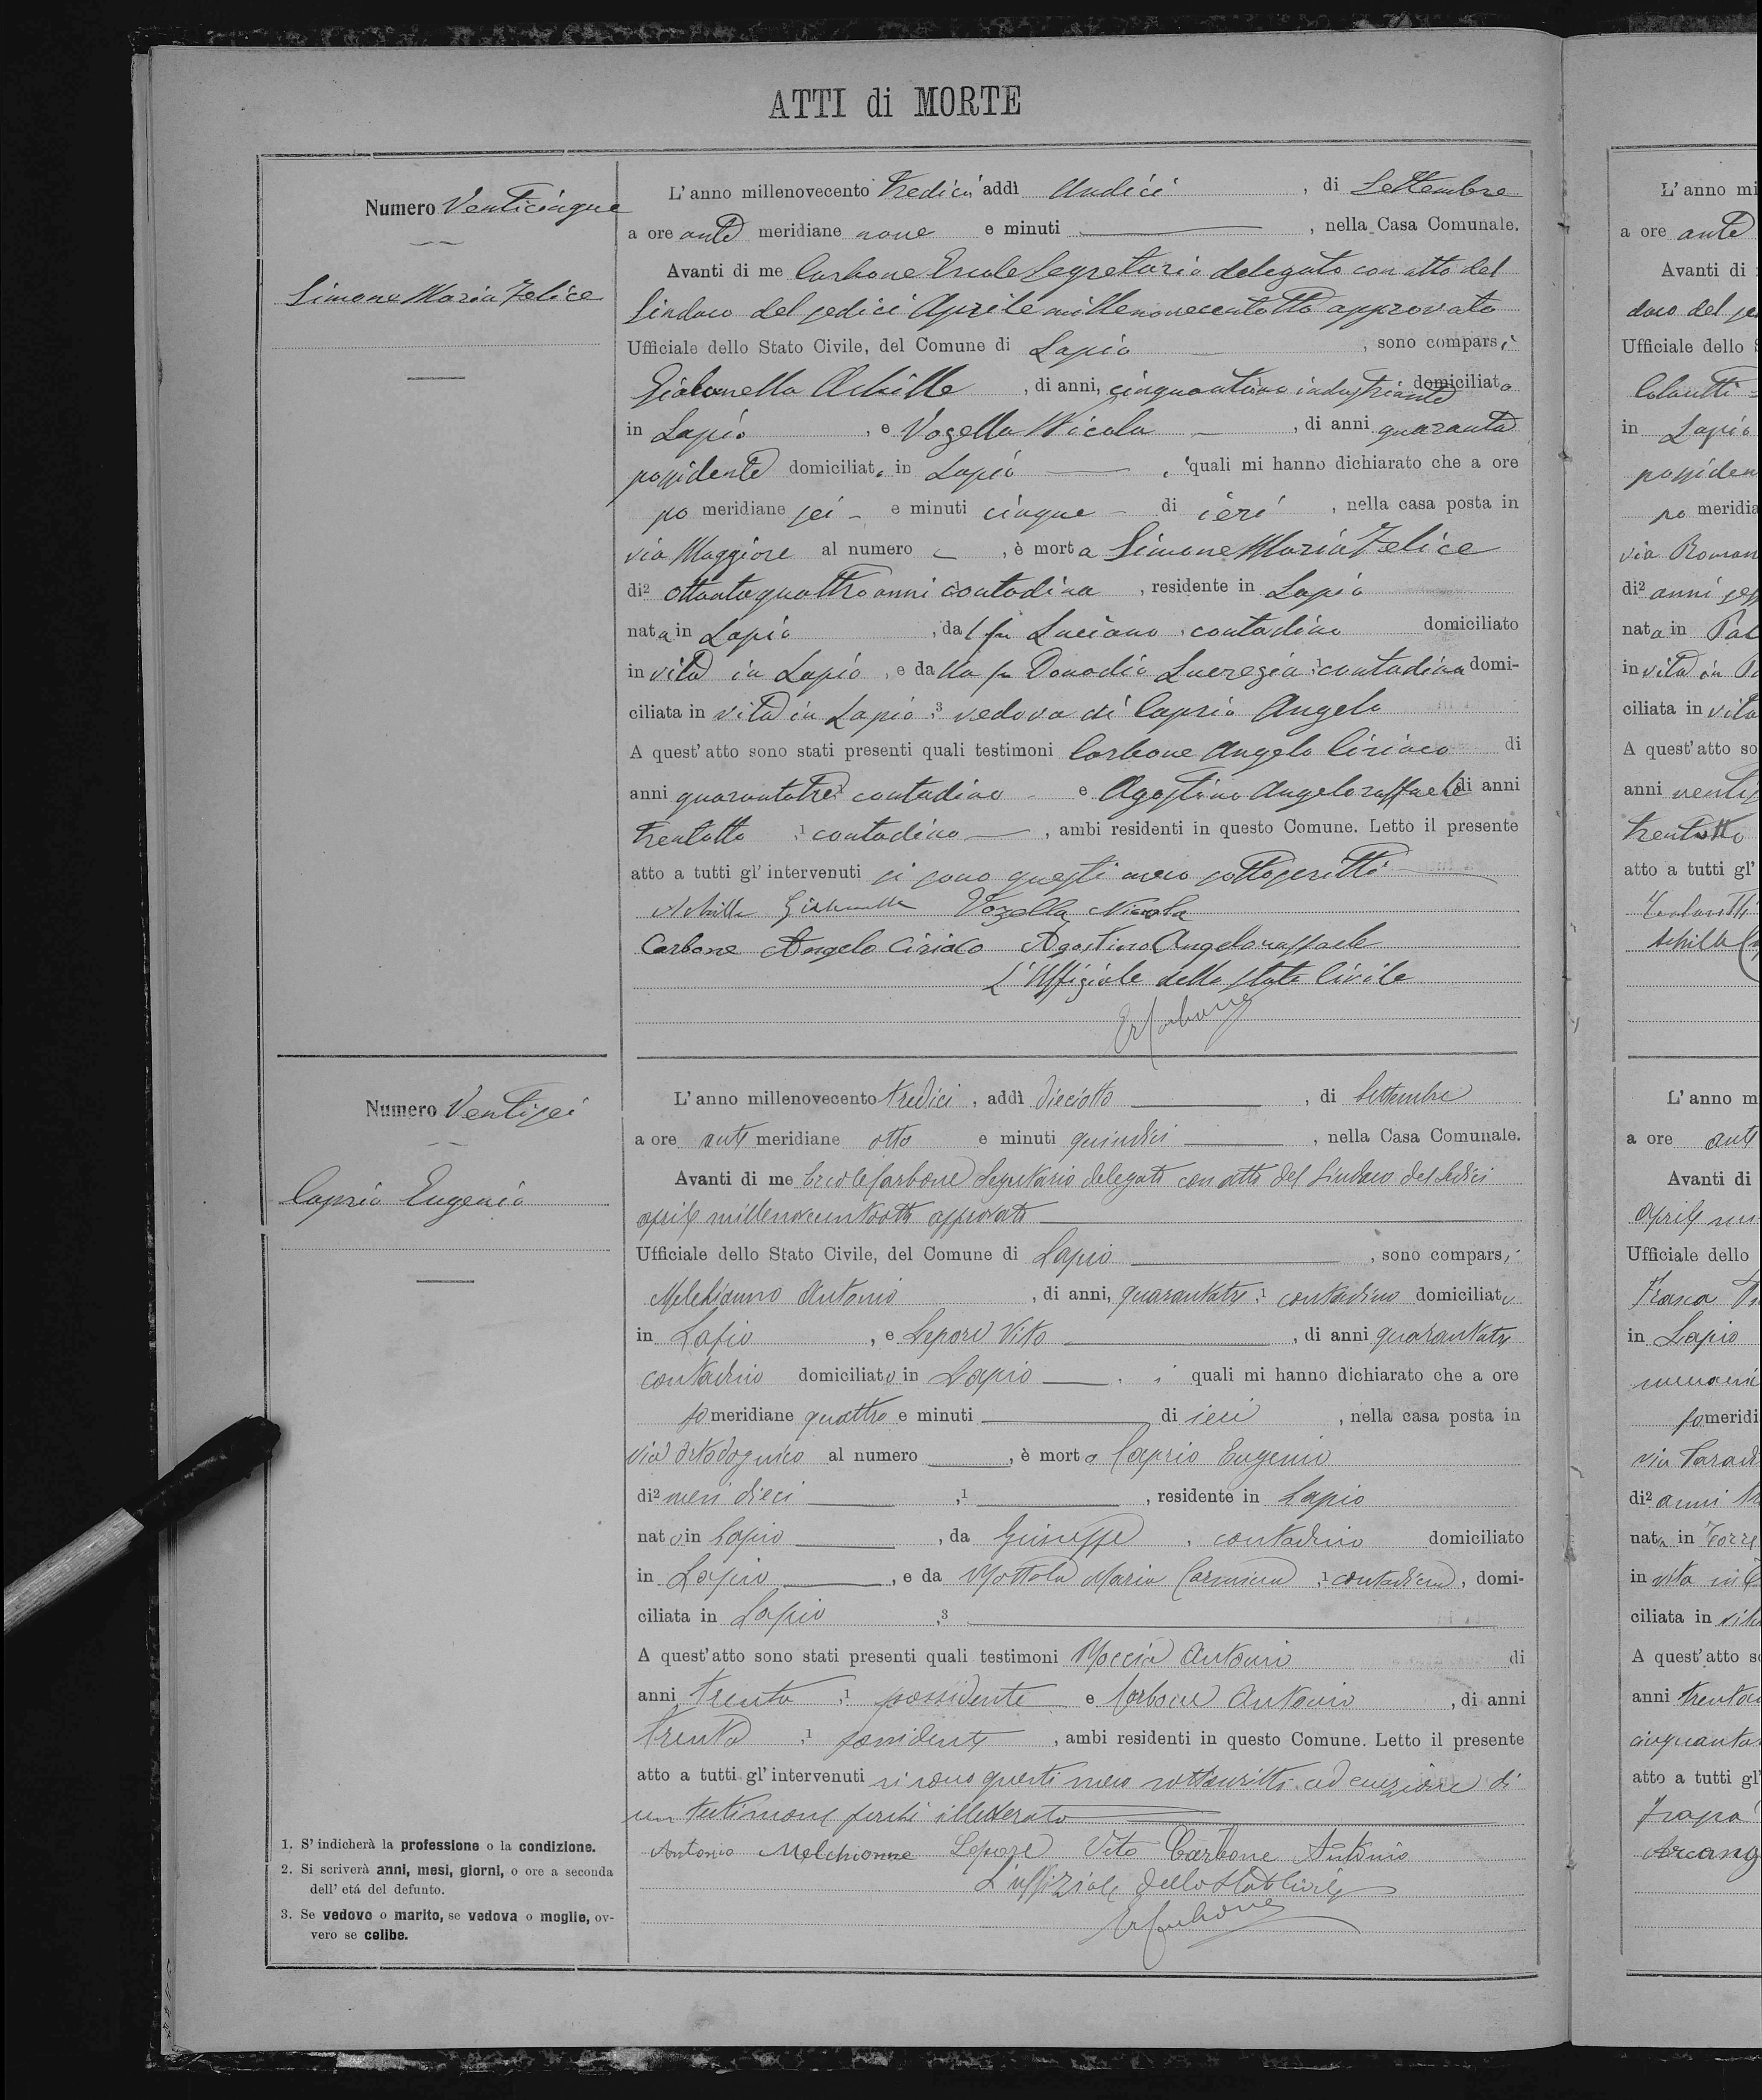 ATTI di MORTE
Numero Venticinque
Simone Maria Felice
L'anno millenovecento tredici addì undici, di Settembre
a ore ante meridiane nove e minuti, nella Casa Comunale.
Avanti di me Carbone Ercole Segretario delegato con atto del
Sindaco del sedici Aprile millenovecentotto approvato
Ufficiale dello Stato Civile, del Comune di Lapio, sono comparsi
Achille, di anni, industriante domiciliato
in Lapio, e Vozella Nicola, di anni quaranta
possidente domiciliato in Lapio, i quali mi hanno dichiarato che a ore
po meridiane sei e minuti cinque di ieri, nella casa posta in
via Maggiore al numero, è morta Simone Maria Felice
di2 ottantaquattro anni contadina, residente in Lapio
nata in Lapio, dal fu Luciano, contadino domiciliato
in vita in Lapio, e dalla fu Donodio Lucrezia,1 contadina domi-
ciliata in vita in Lapio,3 vedova di Caprio Angelo
A quest'atto sono stati presenti quali testimoni Carbone Angelo Ciriaco di
anni quarantatre,1 contadino e Agostino Angeloraffaele di anni
trentotto,1 contadino, ambi residenti in questo Comune. Letto il presente
atto a tutti gl'intervenuti si sono questi meco sottoscritti
Achille Vozella Nicola
Carbone Angelo Ciriaco Agostino Angeloraffaele
L'Uffiziale dello Stato Civile
ErCarbone
Numero Ventisei
Caprio Eugenio
L'anno millenovecento tredici, addì dieciotto, di Settembre
a ore ante meridiane otto e minuti quindici, nella Casa Comunale.
Avanti di me Ercole Carbone Segretario delegato con atto del Sindaco del sedici
aprile millenovecentootto approvato
Ufficiale dello Stato Civile, del Comune di Lapio, sono comparsi
Melchionno Antonio, di anni, quarantatre,1 contadino domiciliato
in Lapio, e Lepore Vito, di anni quarantatre
contadino domiciliato in Lapio, i quali mi hanno dichiarato che a ore
po meridiane quattro e minuti di ieri, nella casa posta in
via al numero, è morto Caprio Eugenio
di2 mesi dieci,1, residente in Lapio
nato in Lapio, da Giuseppe, contadino domiciliato
in Lapio, e da Mottola Maria Carmina,1 contadina, domi-
ciliata in Lapio,3
A quest'atto sono stati presenti quali testimoni Moccia Antonio di
anni trenta,1 possidente e Carbone Antonio, di anni
trenta,1 possidente, ambi residenti in questo Comune. Letto il presente
atto a tutti gl'intervenuti si sono questi meco sottoscritti ad eccezione di
un testimone perché illetterato
Antonio Melchionne Lepore Vito Carbone Antonio
L'uffiziale dello Stato Civile
ErCarbone
1. S'indicherà la professione o la condizione.
2. Si scriverà anni, mesi, giorni, o ore a seconda
dell'etá del defunto.
3. Se vedovo o marito, se vedova o moglie, ov-
vero se celibe.
L'anno mi
a ore ante
Avanti di
daco del se
Ufficiale dello S
in Lapio
possiden
po meridia
via Roman
di2 anni
nata in
in vita in
ciliata in vita
A quest'atto so
anni
trentotto
atto a tutti gl'
Achille
L'anno m
a ore ante
Avanti di
aprile
Ufficiale dello
in Lapio
po meridi
via
di2 anni
nata in Torre
in vita in
ciliata in vita
A quest'atto so
anni
atto a tutti gl'